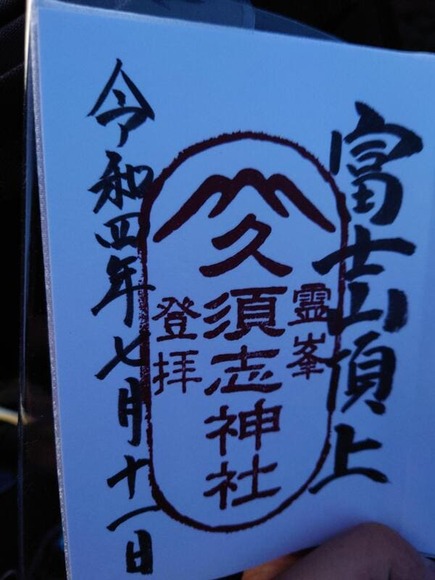 富士山頂上
霊峯
久須志神社
登拝
令和四年七月十一日